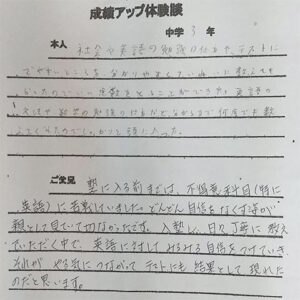 成績アップ体験談
中学3年
本人 社会や英語の勉強のしかたや、テストに
でやすいところを、わかりやすくていねいに教えて
よかったので、いい点数をとることができた。英語の
文法や数学の勉強のしかたなど、わかるまで何度でも教
えてくれたので、しっかりと頭に入った。
ご父兄 塾に入る前までは、不得意科目(特に
英語)に苦戦していました。どんどん自信をなくす姿が
親として見ていて切なかったです。入塾し、日々丁寧に教え
ていただく中で、英語に対してみるみる自信をつけていき
それが やる気につながって テストにも結果として現れた
のだと思います。